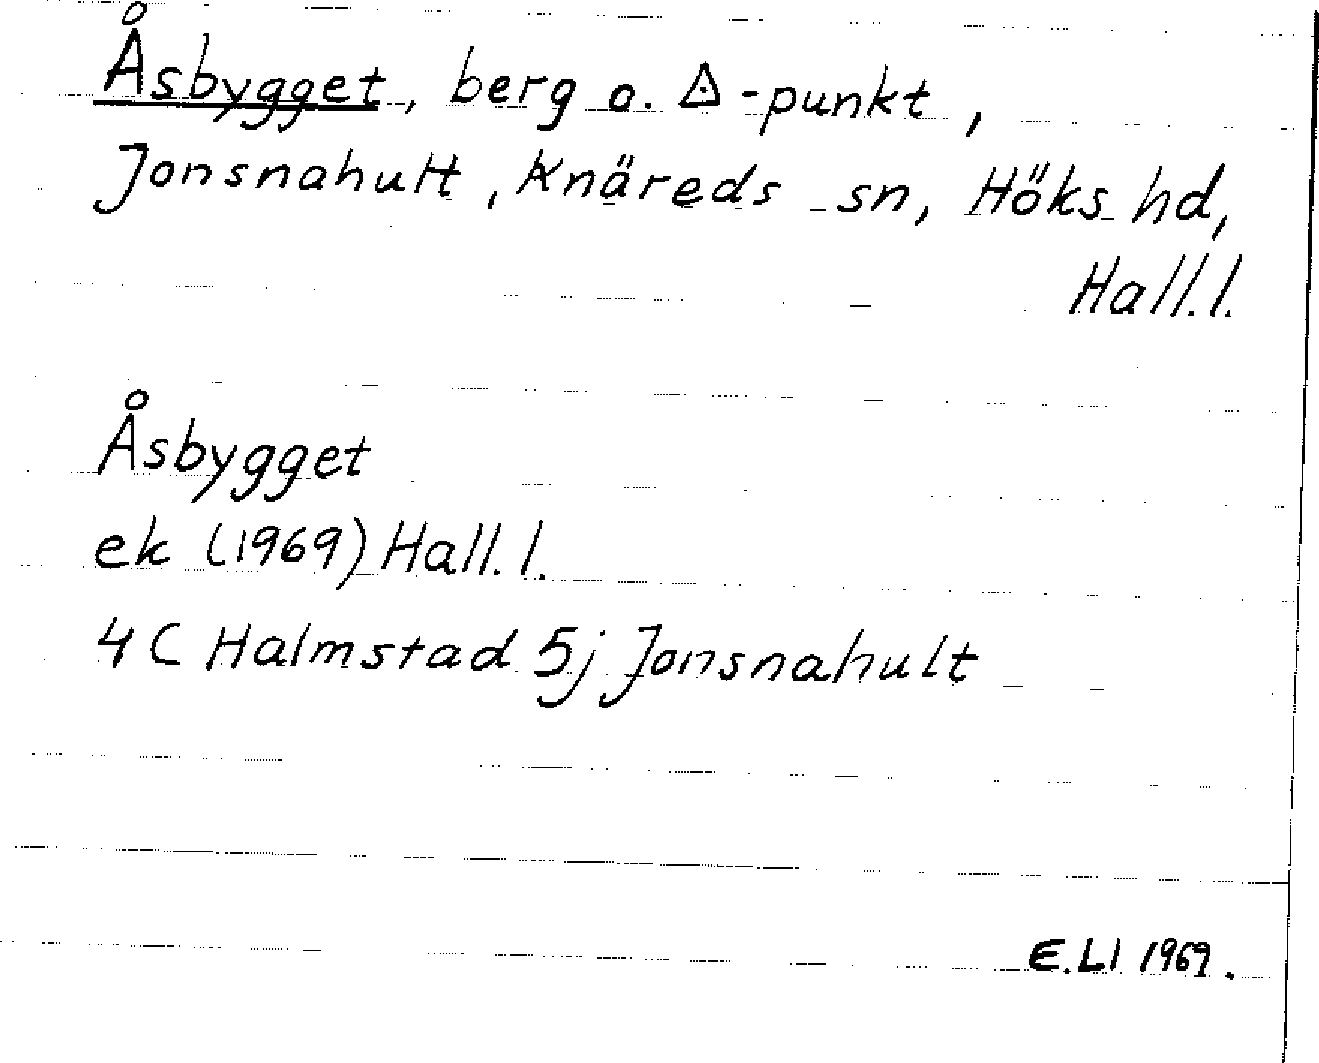 Åsbygget, berg o. △-punkt,
Jonsnahult, Knäreds sn, Höks hd,
Hall.l.
Åsbygget
ek (1969) Hall.l.
4C Halmstad 5j Jonsnahult
E.LI 1969.